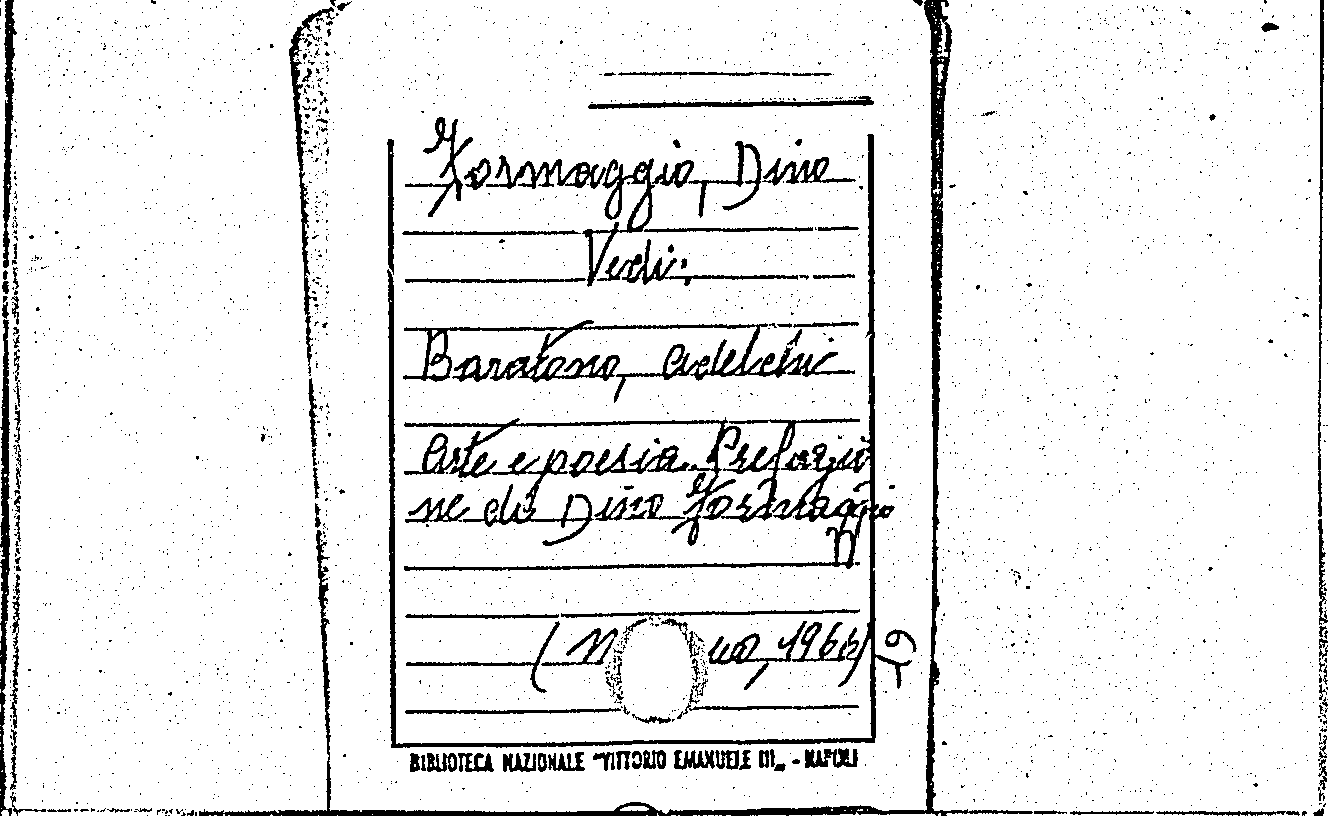 Formaggio, Dino
Vedi:
Baratono, Adelchi
Arte e poesia. Prefazio
ne di Dino Formaggio
(M no, 1966)
BIBLIOTECA NAZIONALE "VITTORIO EMANUELE III„ - NAPOLI